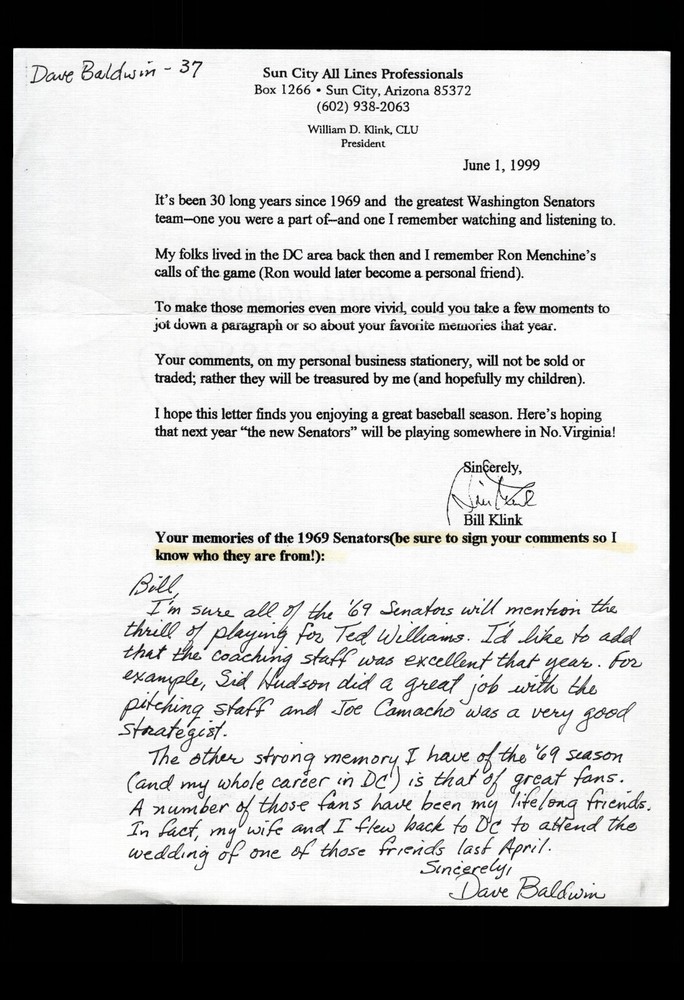 Dave Baldwin - 37
Sun City All Lines Professionals
Box 1266 • Sun City, Arizona 85372
(602) 938-2063
William D. Klink, CLU
President
June 1, 1999
It's been 30 long years since 1969 and the greatest Washington Senators
team--one you were a part of--and one I remember watching and listening to.
My folks lived in the DC area back then and I remember Ron Menchine's
calls of the game (Ron would later become a personal friend).
To make those memories even more vivid, could you take a few moments to
jot down a paragraph or so about your favorite memories that year.
Your comments, on my personal business stationery, will not be sold or
traded; rather they will be treasured by me (and hopefully my children).
I hope this letter finds you enjoying a great baseball season. Here's hoping
that next year “the new Senators” will be playing somewhere in No.Virginia!
Sincerely,
Bill Klink
Bill Klink
Your memories of the 1969 Senators(be sure to sign your comments so I
know who they are from!):
Bill,
I'm sure all of the '69 Senators will mention the
thrill of playing for Ted Williams. I'd like to add
that the coaching staff was excellent that year. For
example, Sid Hudson did a great job with the
pitching staff and Joe Camacho was a very good
strategist.
The other strong memory I have of the '69 season
(and my whole career in DC) is that of great fans.
A number of those fans have been my lifelong friends.
In fact, my wife and I flew back to DC to attend the
wedding of one of those friends last April.
Sincerely,
Dave Baldwin